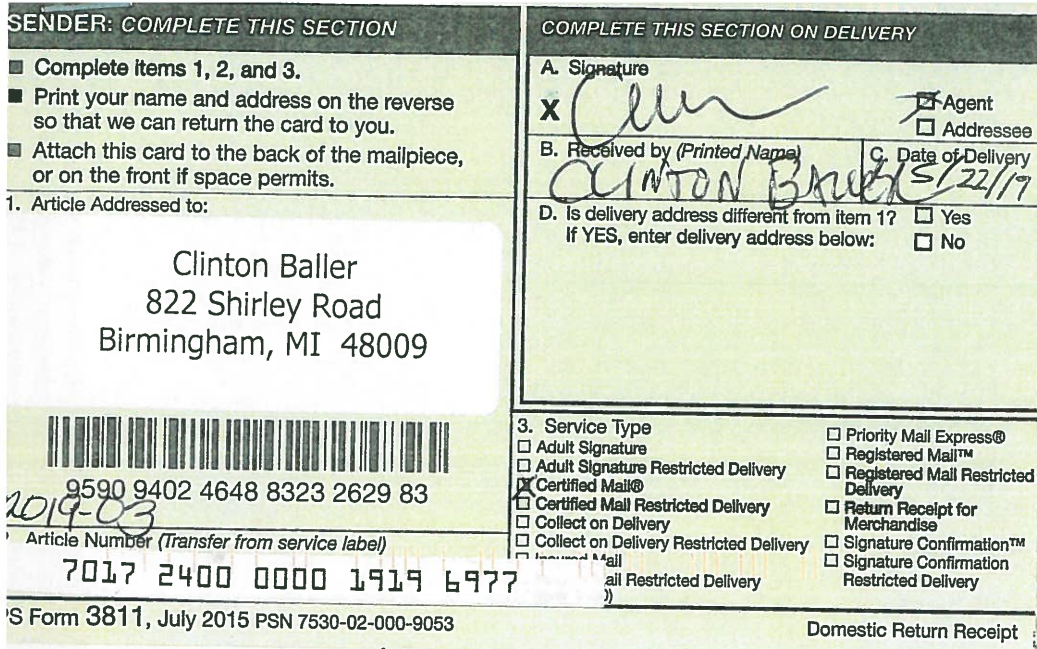 SENDER: COMPLETE THIS SECTION
■ Complete items 1, 2, and 3.
■ Print your name and address on the reverse
so that we can return the card to you.
■ Attach this card to the back of the mailpiece,
or on the front if space permits.
1. Article Addressed to:
Clinton Baller
822 Shirley Road
Birmingham, MI 48009
9590 9402 4648 8323 2629 83
2019-03
Article Number (Transfer from service label)
7017 2400 0000 1919 6977
PS Form 3811, July 2015 PSN 7530-02-000-9053
COMPLETE THIS SECTION ON DELIVERY
A. Signature
X
☒ Agent
☐ Addressee
B. Received by (Printed Name)
CLINTON BALLER
C. Date of Delivery
5/22/19
D. Is delivery address different from item 1? ☐ Yes
If YES, enter delivery address below: ☐ No
3. Service Type
☐ Adult Signature
☐ Adult Signature Restricted Delivery
☒ Certified Mail®
☐ Certified Mail Restricted Delivery
☐ Collect on Delivery
☐ Collect on Delivery Restricted Delivery
☐ Insured Mail
ail Restricted Delivery
0)
☐ Priority Mail Express®
☐ Registered Mail™
☐ Registered Mail Restricted
Delivery
☐ Return Receipt for
Merchandise
☐ Signature Confirmation™
☐ Signature Confirmation
Restricted Delivery
Domestic Return Receipt